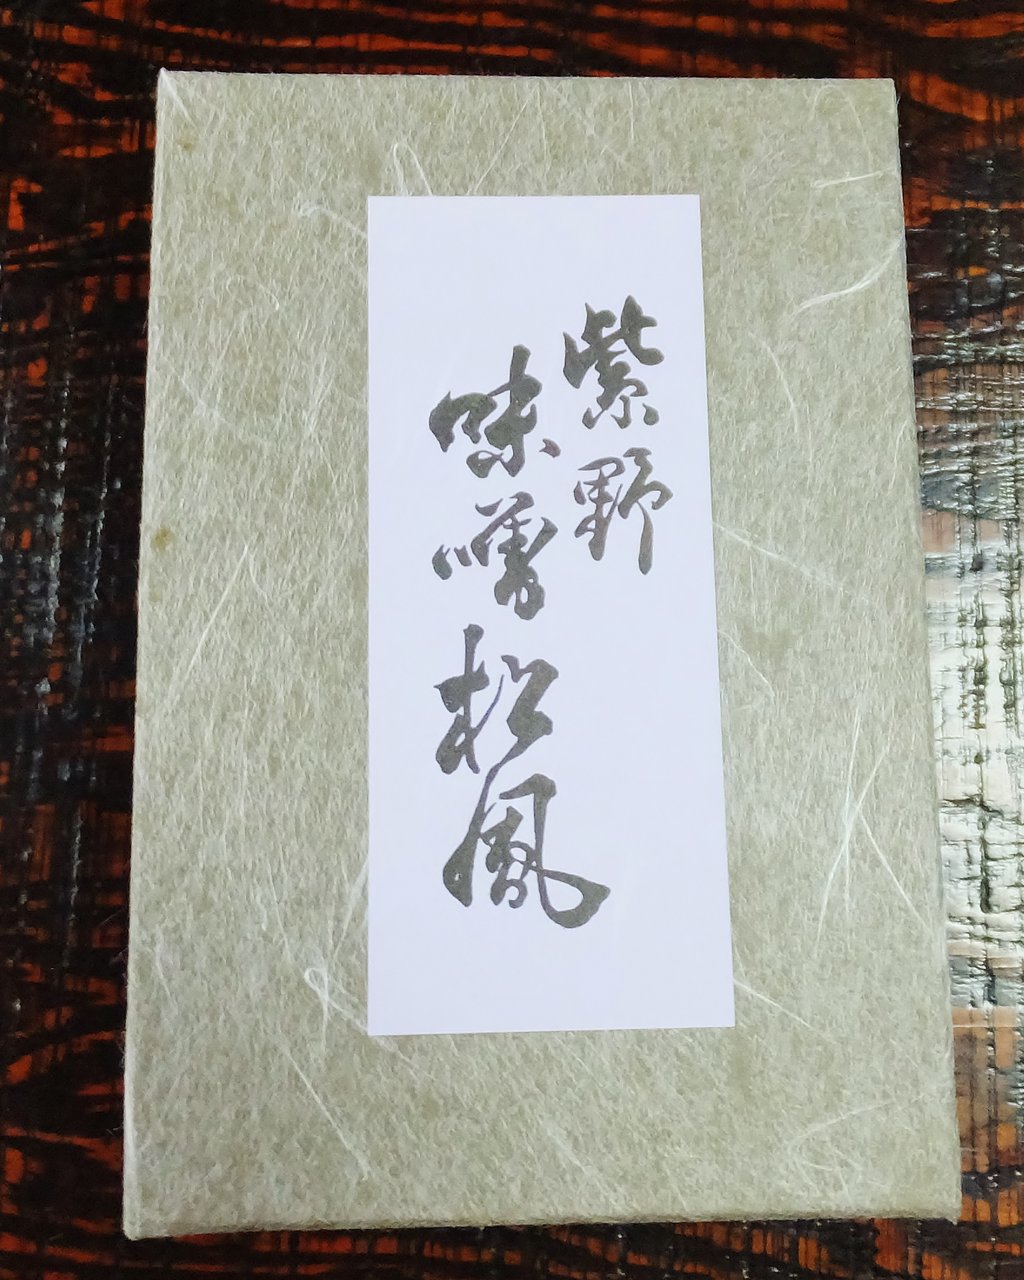 紫野
味噌松風